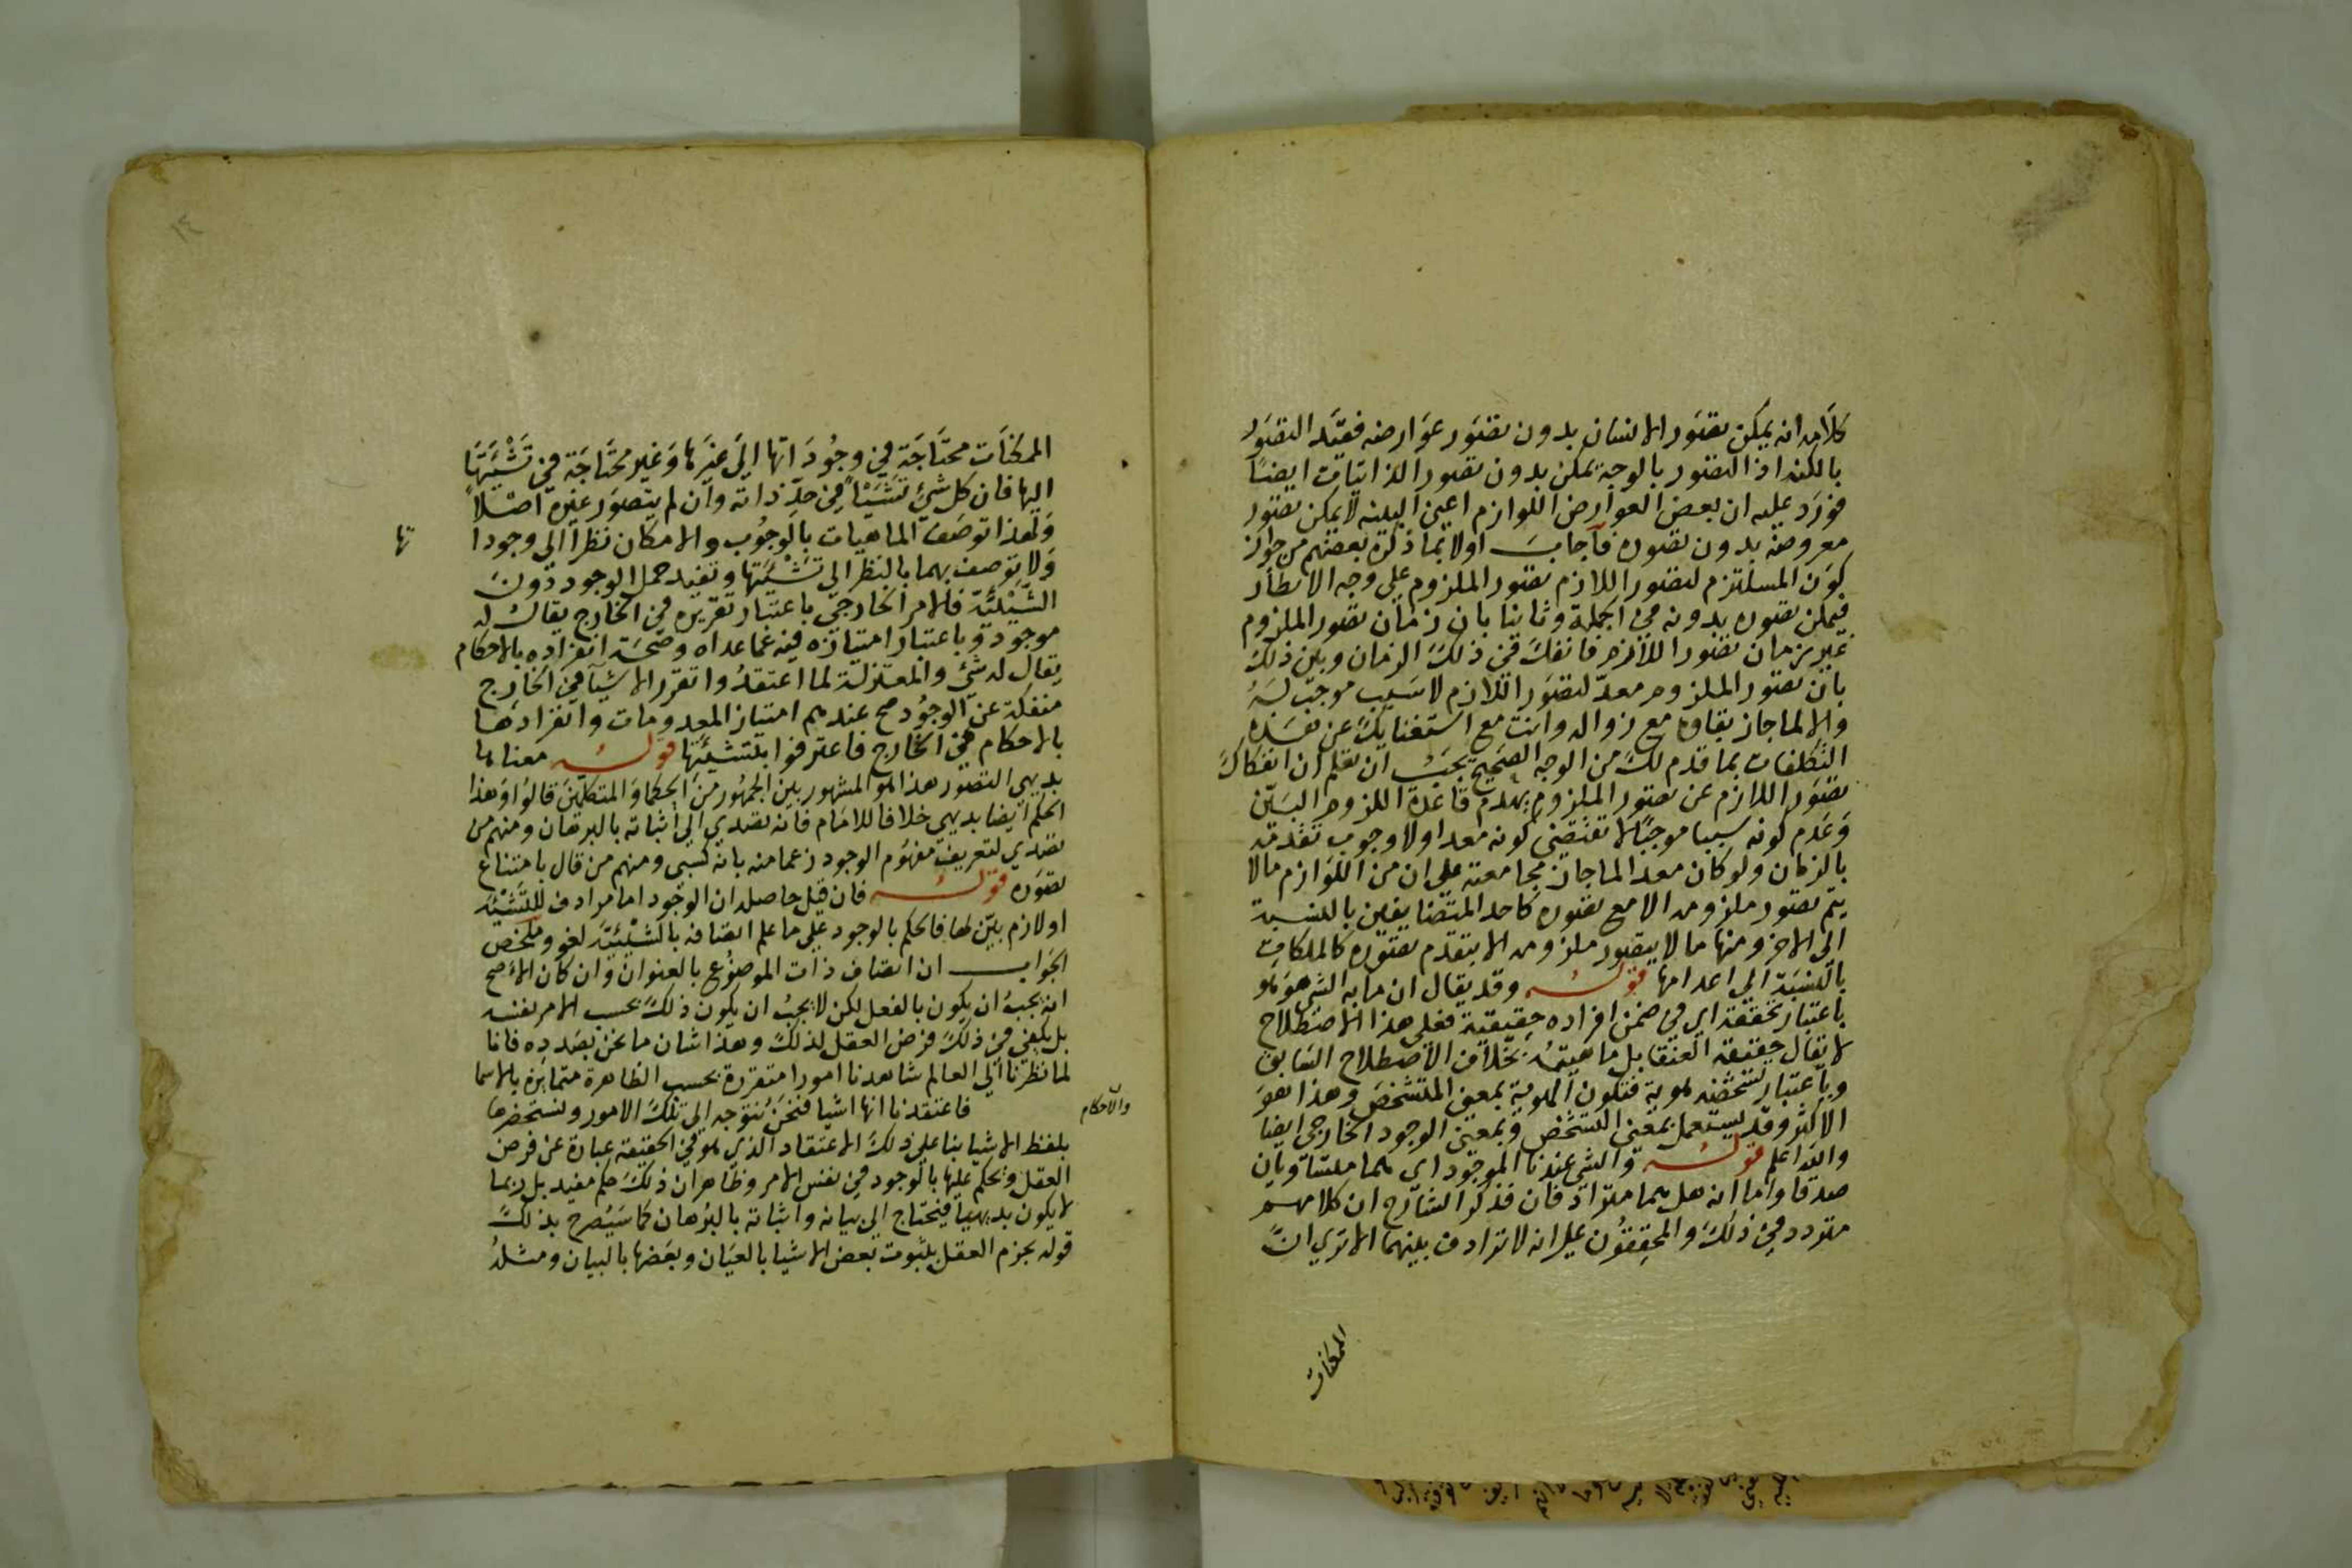 كلامه انه يمكن تصور الانسان بدون تصور عوارضه فقيد التصور
بالكنه اذ التصور بالوجه يمكن بدون تصور الذاتيات ايضا
فورد عليه ان بعض العوارض اللوازم اعني البينه لا يمكن تصور
معروضه بدون تصوره فاجاب اولا بما ذكره بعضهم من جواز
كون المستلزم لتصور اللازم تصور الملزوم على وجه الاخطار
فيمكن تصوره بدونه في الجملة وثانيا بان زمان تصور الملزوم
غير زمان تصور اللازم فانفك في ذلك الزمان وبين ذلك
بان تصور الملزوم معد لتصور اللازم لا سبب موجب له
والا لما جاز بقاوه مع زواله وانت مع استغنايك عن هذه
التكلفات بما قدم لك من الوجه الصحيح يجب ان تعلم ان انفكاك
تصور اللازم عن تصور الملزوم يهدم قاعدة اللزوم البين
وعدم كونه سببا موجبا لا تقتضي كونه معدا ولا وجوب تقدمه
بالزمان ولو كان معدا لما جاز مجامعته على ان من اللوازم ما لا
يتم تصور ملزومه الا مع تصوره كاحد المتضايفين بالنسبة
الى الاخر ومنها ما لا يتصور ملزومه الا بتقدم تصوره كالملكات
بالنسبة الى اعدامها قوله وقد يقال ان ما به الشي هو هو
باعتبار تحققه اي في ضمن افراده حقيقية فعلى هذا الاصطلاح
لا تقال حقيقة العنقا بل ماهيته بخلاف الاصطلاح السابق
وباعتبار تشخصه هوية فتكون الهوية بمعنى المتشخص وهذا هو
الاكثر وقد يستعمل بمعنى التشخص وبمعنى الوجود الخارجي ايضا
والله اعلم قوله والشي عندنا الموجود اي هما متساويان
صدقا واما انه هل هما مترادفان فذكر الشارح ان كلامهم
متردد في ذلك والمحققون على انه لا ترادف بينهما الا تري ان
الممكنات
الممكنات محتاجة في وجوداتها الى غيرها وغير محتاجة في تشيئها
اليها فان كل شئ تشيئا في حد ذاته وان لم يتصور غيره اصلا
ولهذا توصف الماهيات بالوجوب والامكان نظرا الى وجودا
تها
ولا توصف بهما بالنظر الى تشيئتها وتفيد حمل الوجود دون
الشيئية فالامر الخارجي باعتبار تقرره في الخارج يقال له
موجود وباعتبار امتيازه فيه عما عداه وصحة انفراده بالاحكام
يقال له شئ والمعتزلة لما اعتقدوا تقرر الاشيا في الخارج
منفكة عن الوجود صح عندهم امتياز المعدومات وانفرادها
بالاحكام في الخارج فاعترفوا بتشيئها قوله معناها
بديهي التصور هذا هو المشهور بين الجمهور من الحكما والمتكلمين قالوا وهذا
الحكم ايضا بديهي خلافا للامام فانه تصدي الى اثباته بالبرهان ومنهم من
تصدي لتعريف مفهوم الوجود زعما منه بانه كسبي ومنهم من قال بامتناع
تصوره قوله فان قيل حاصله ان الوجود اما مرادف للتشيئه
او لازم بين لها فالحكم بالوجود على ما علم اتصافه بالشيئية لغو وملخص
الجواب ان اتصاف ذات الموضوع بالعنوان وان كان الاصح
انه يجب ان يكون بالفعل لكن لا يجب ان يكون ذلك بحسب الامر نفسه
بل يكفي في ذلك فرض العقل لذلك وهذا شان ما نحن بصدده فانا
لما نظرنا الى العالم شاهدنا امورا متقررة بحسب الظاهرة متمايزة بالاسما
والاحكام
فاعتقدنا انها اشيا فنحن نتوجه الى تلك الامور ونستحضرها
بلفظ الاشيا بنا على ذلك الاعتقاد الذي هو في الحقيقة عبارة عن فرض
العقل ونحكم عليها بالوجود في نفس الامر وظاهر ان ذلك حكم مفيد بل ربما
لا يكون بديهيا فيحتاج الى بيانه واثباته بالبرهان كما سيصرح بذلك
قوله بجزم العقل بثبوت بعض الاشيا بالعيان وبعضها بالبيان ومثله